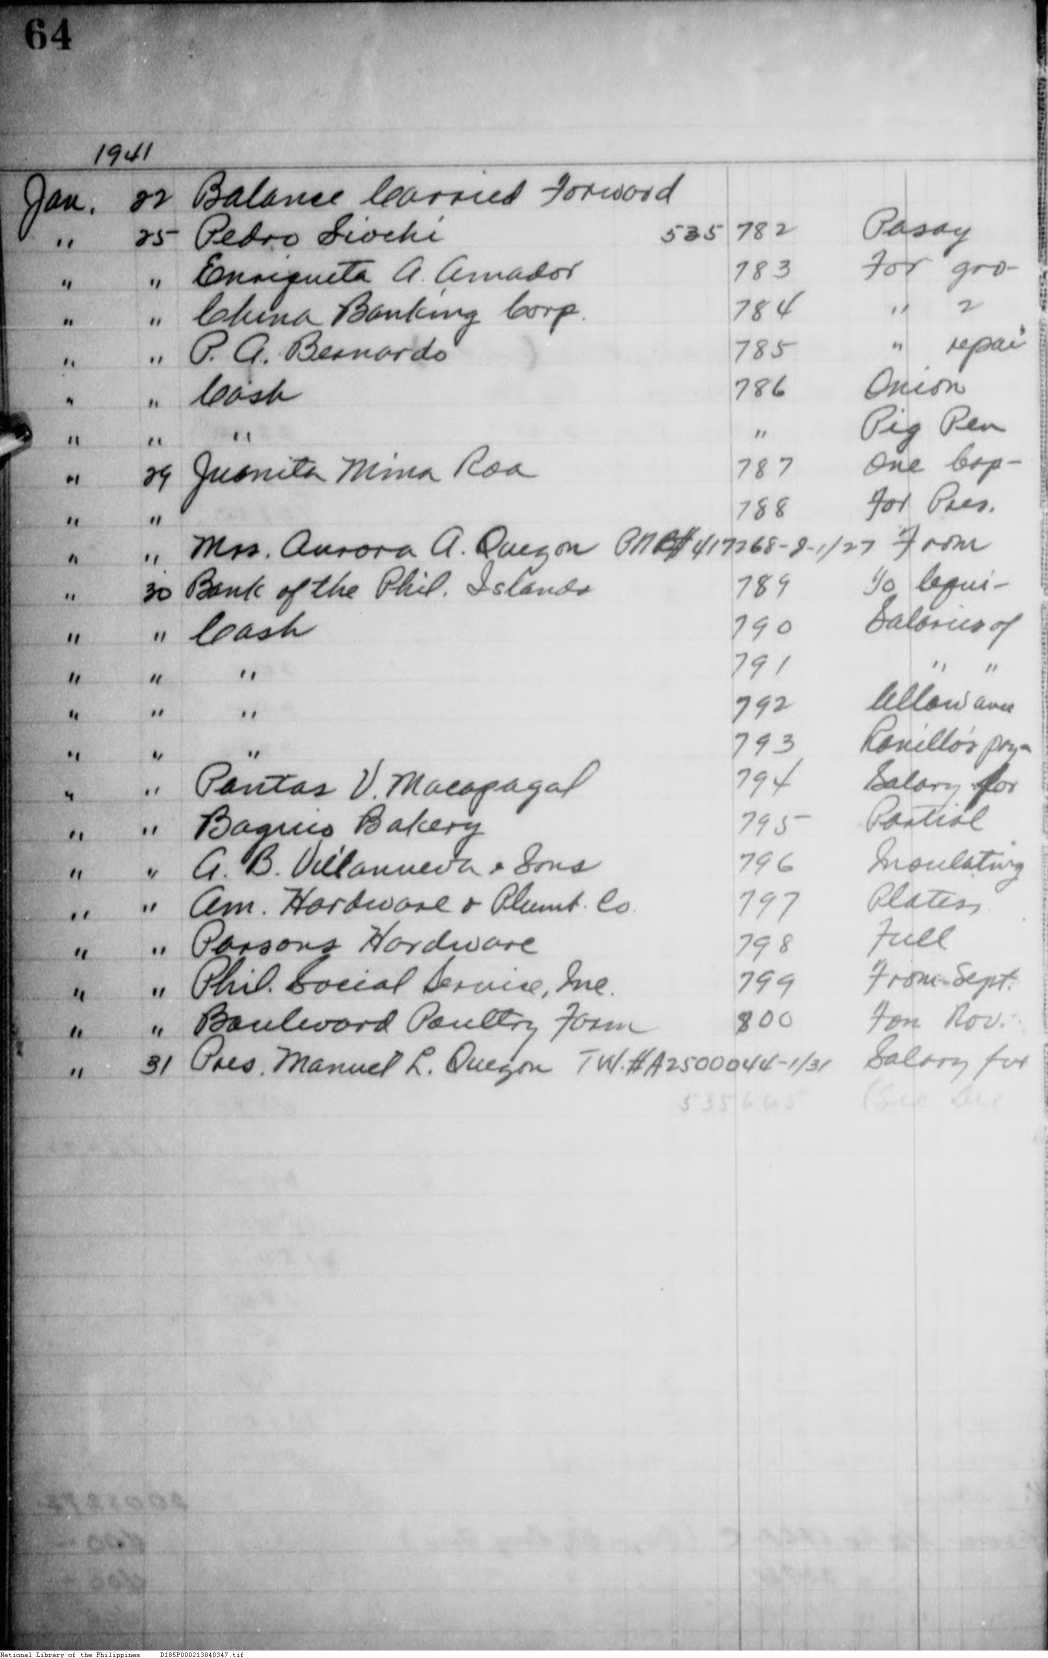 64
1941
Jan. 22 Balance Carried Forward
" 25 Pedro Siochi 535 782 Pasay
" " Enriqueta A. Amador 783 For gro-
" " China Banking Corp. 784 " 2
" " P. A. Bernardo 785 " repair
" " Cash 786 Onion
" " " " Pig Pen
" 29 Juanita Mina Roa 787 One Cop-
" " 788 For Pres.
" " Mrs. Aurora A. Quezon 417268-J-1/27 From
" 30 Bank of the Phil. Islands 789 To Cqui-
" " Cash 790 Salaries of
" " " 791 " "
" " " 792 Allowance
" " " 793 Ronillo's pay-
" " Pantas V. Macapagal 794 Salary for
" " Baguio Bakery 795 Partial
" " A. B. Villanueva & Sons 796 Insulating
" " Am. Hardware & Plumb. Co. 797 Plates
" " Parsons Hardware 798 Full
" " Phil. Social Service, Inc. 799 From Sept.
" " Boulevard Poultry Farm 800 For Nov.
" 31 Pres. Manuel L. Quezon T.W.#A2500044-1/31 Salary for
National Library of the Philippines D185P000213040347.tif